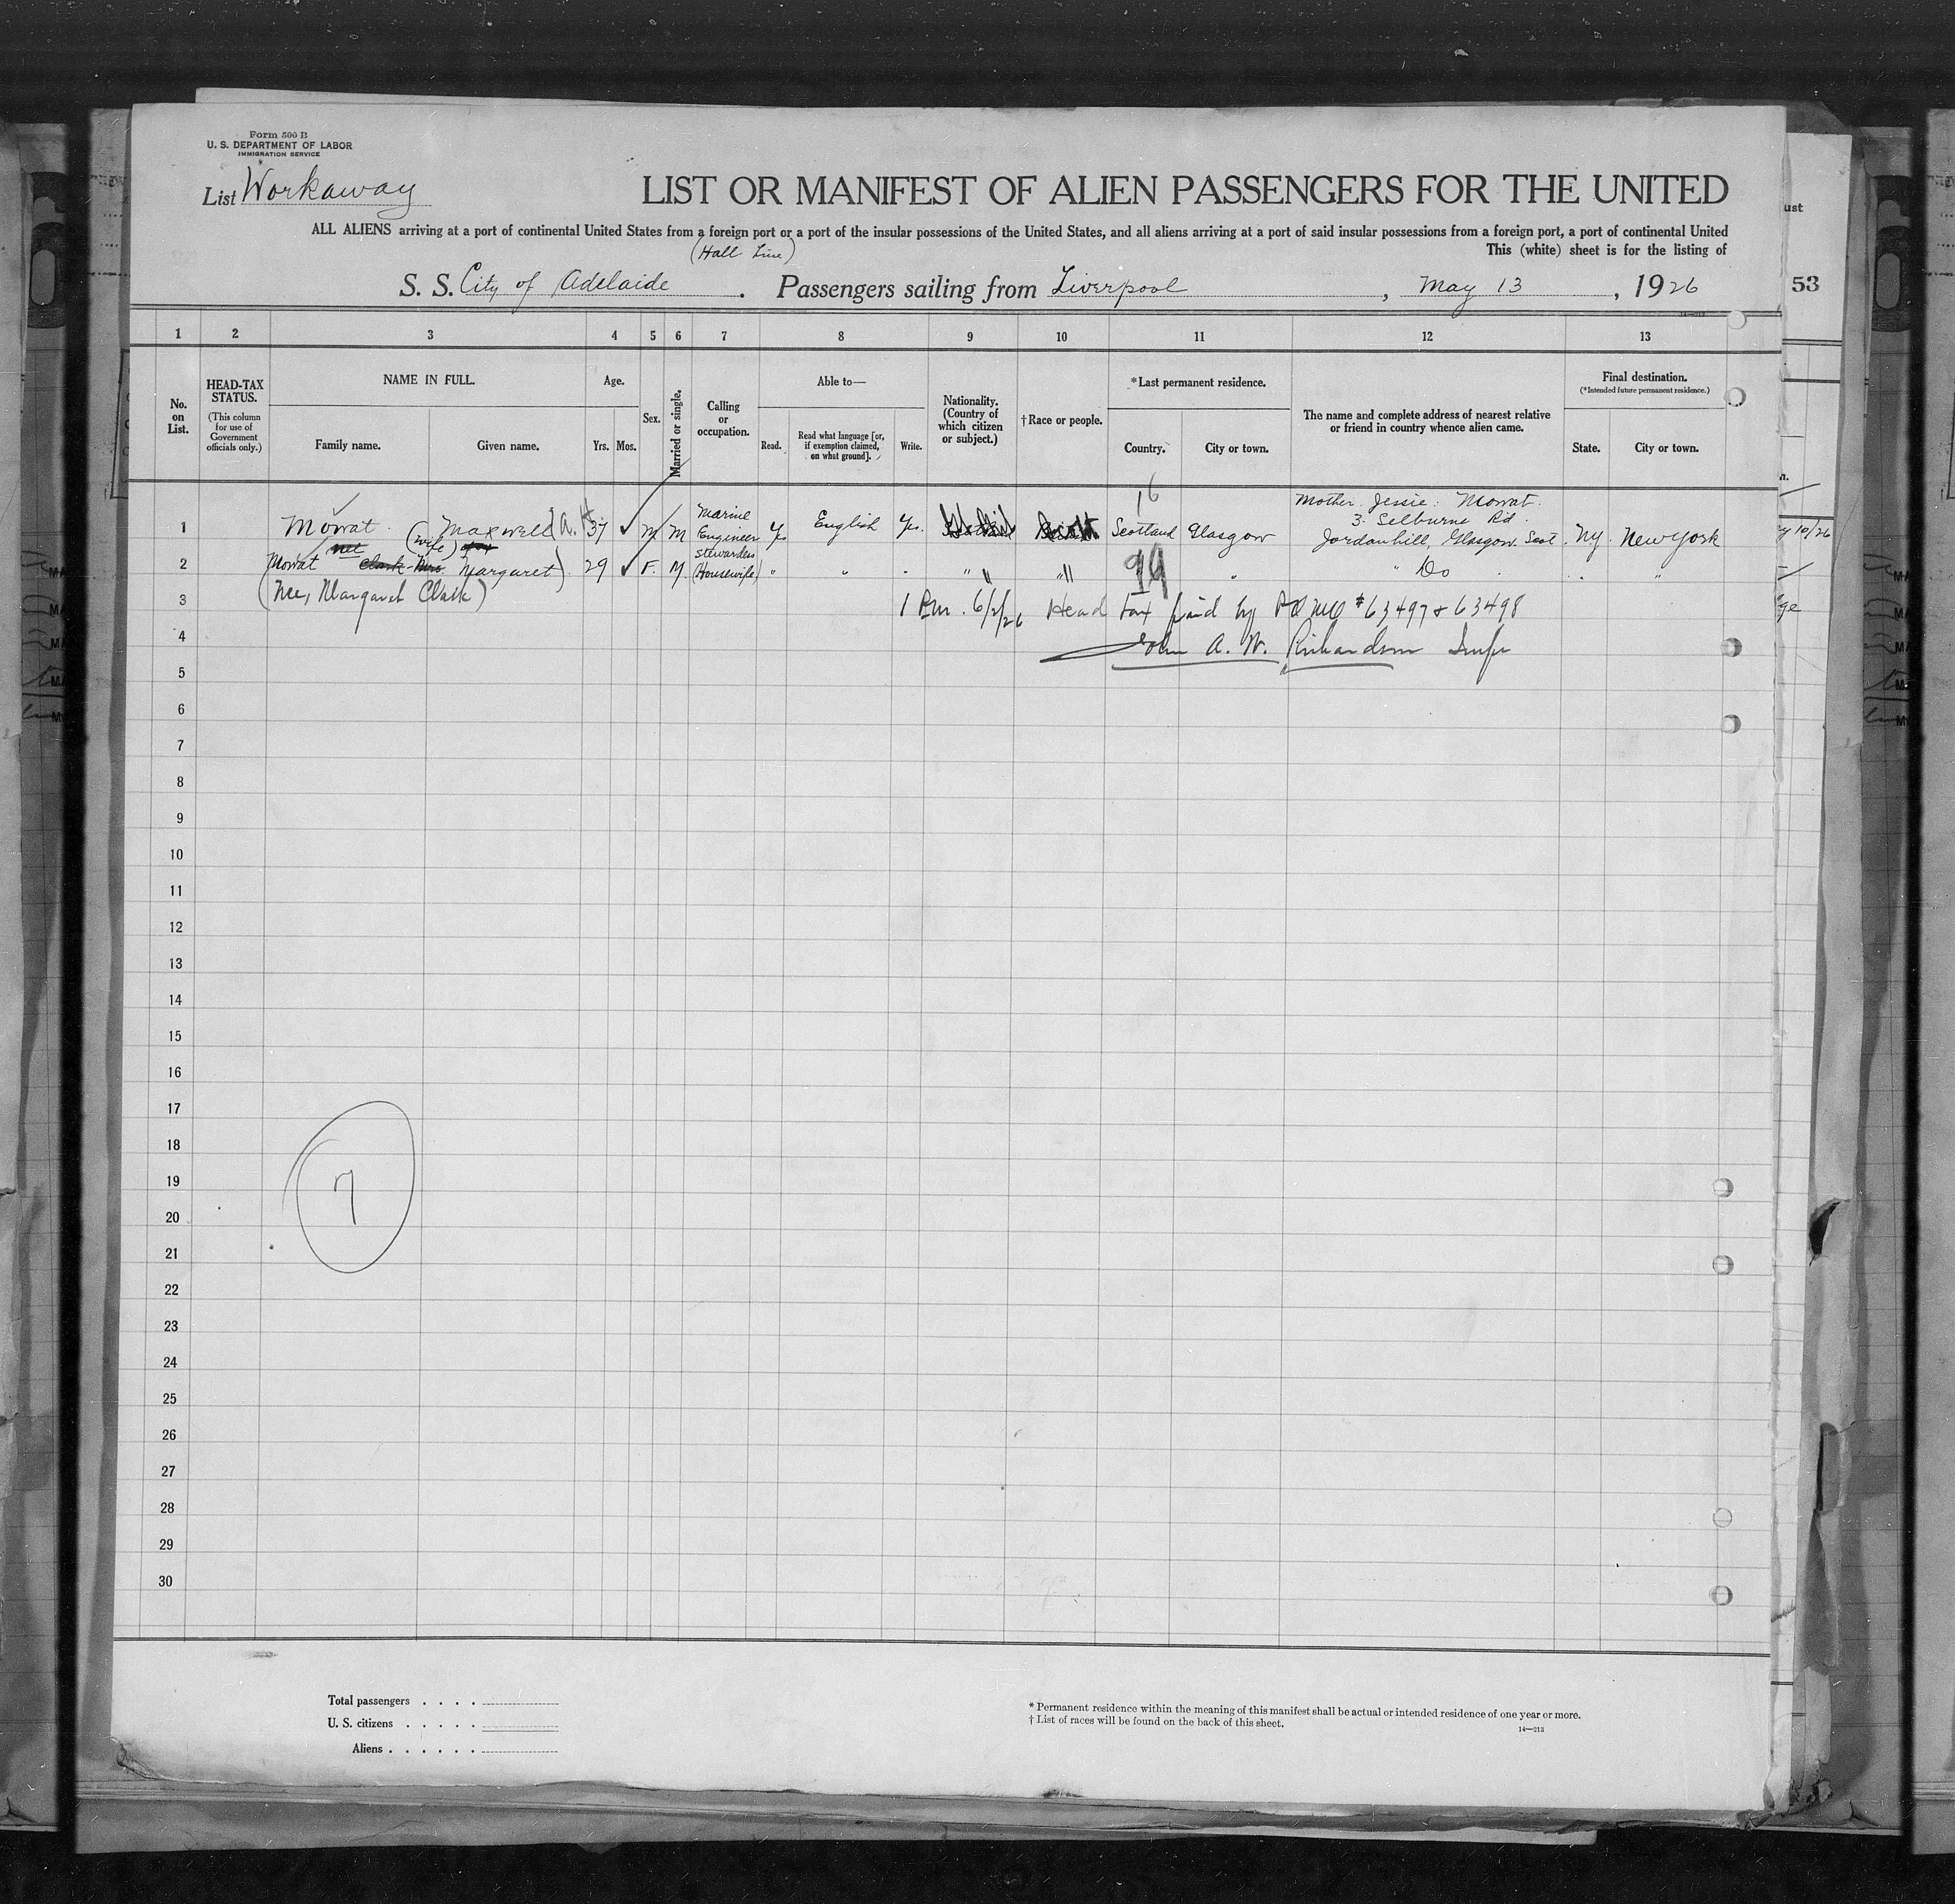 Form 500 B
U. S. DEPARTMENT OF LABOR
IMMIGRATION SERVICE
List Workaway
LIST OR MANIFEST OF ALIEN PASSENGERS FOR THE UNITED
ALL ALIENS arriving at a port of continental United States from a foreign port or a port of the insular possessions of the United States, and all aliens arriving at a port of said insular possessions from a foreign port, a port of continental United
(Hall Line)
This (white) sheet is for the listing of
S. S. City of Adelaide. Passengers sailing from Liverpool, May 13, 1926
53
ust
1 2 3 4 5 6 7 8 9 10 11 12 13
No. on List.
HEAD-TAX STATUS.
(This column for use of Government officials only.)
NAME IN FULL.
Family name. Given name.
Age.
Yrs. Mos.
Sex.
Married or single.
Calling or occupation.
Able to—
Read. Read what language [or, if exemption claimed, on what ground]. Write.
Nationality. (Country of which citizen or subject.)
†Race or people.
*Last permanent residence.
Country. City or town.
The name and complete address of nearest relative or friend in country whence alien came.
Final destination.
(*Intended future permanent residence.)
State. City or town.
1 Mowat Maxwell A. H. 37 M M Marine Engineer Yes English Yes. Scotland Glasgow Mother. Jessie. Mowat. 3. Selburne Rd. Jordanhill, Glasgow. Scot. NY. New York
16
2 (Mowat Clark Mrs. (wife) Margaret) 29 F. M. stewardess (Housewife) " " " " " Do " "
99
3 (nee, Margaret Clark)
1 Pm. 6/2/26 Head tax paid by PO MO #63497 & 63498
4 John A. W. Richardson Insp
5
6
7
8
9
10
11
12
13
14
15
16
17
18
19
20
21
22
23
24
25
26
27
28
29
30
7
Total passengers . . . .
U. S. citizens . . . . .
Aliens . . . . . .
* Permanent residence within the meaning of this manifest shall be actual or intended residence of one year or more.
† List of races will be found on the back of this sheet.
14—213